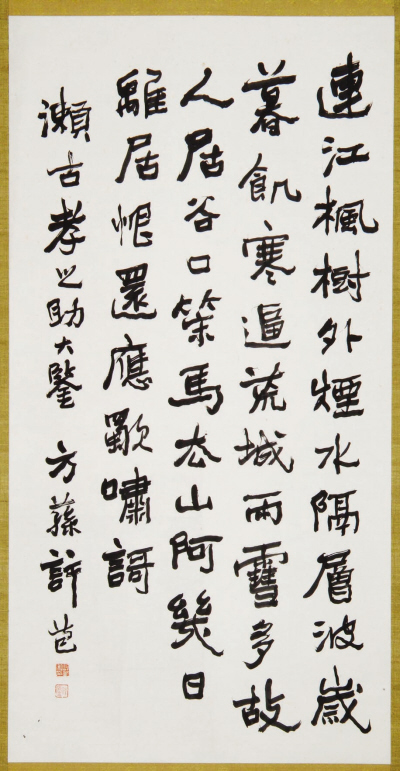 連江楓樹外煙水隔層波歲
暮飢寒逼荒城雨雪多故
人居谷口策馬去山阿幾日
離居恨還應嘯謌
瀨古孝之助大鑒 方蓀許苞